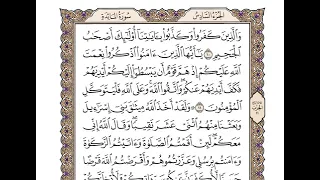 الجزء السادس سورة المائدة
وَالَّذِينَ كَفَرُوا وَكَذَّبُوا بِـَٔايَـٰتِنَآ أُو۟لَـٰٓئِكَ أَصْحَـٰبُ
ٱلْجَحِيمِ ١٠ يَـٰٓأَيُّهَا ٱلَّذِينَ ءَامَنُوا ٱذْكُرُوا نِعْمَتَ
ٱللَّهِ عَلَيْكُمْ إِذْ هَمَّ قَوْمٌ أَن يَبْسُطُوٓا إِلَيْكُمْ أَيْدِيَهُمْ
فَكَفَّ أَيْدِيَهُمْ عَنكُمْ وَٱتَّقُوا ٱللَّهَ وَعَلَى ٱللَّهِ فَلْيَتَوَكَّلِ
ٱلْمُؤْمِنُونَ ١١ وَلَقَدْ أَخَذَ ٱللَّهُ مِيثَـٰقَ بَنِىٓ إِسْرَٰٓءِيلَ
وَبَعَثْنَا مِنْهُمُ ٱثْنَىْ عَشَرَ نَقِيبًا وَقَالَ ٱللَّهُ إِنِّى
مَعَكُمْ لَئِنْ أَقَمْتُمُ ٱلصَّلَوٰةَ وَءَاتَيْتُمُ ٱلزَّكَوٰةَ
وَءَامَنتُم بِرُسُلِى وَعَزَّرْتُمُوهُمْ وَأَقْرَضْتُمُ ٱللَّهَ قَرْضًا